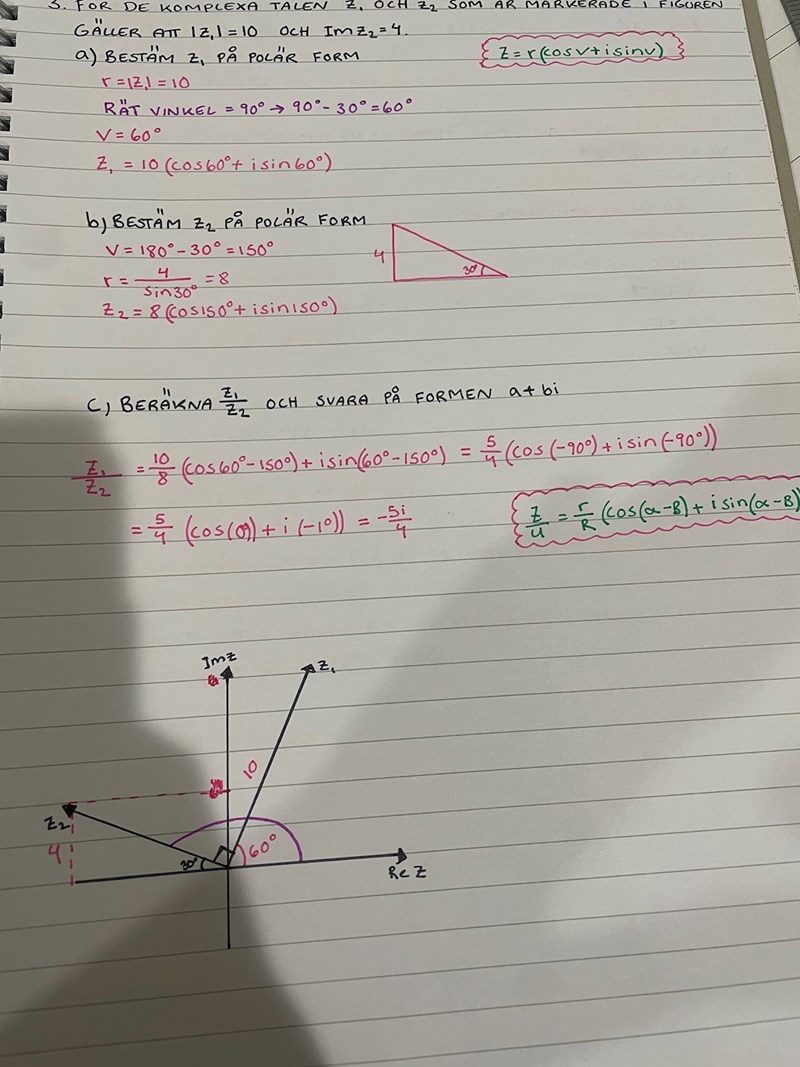 3. FÖR DE KOMPLEXA TALEN Z₁ OCH Z₂ SOM ÄR MARKERADE I FIGUREN
GÄLLER ATT |Z₁|=10 OCH Im Z₂=4.
a) BESTÄM Z₁ PÅ POLÄR FORM
Z=r(cosv+isinv)
r=|Z₁|=10
RÄT VINKEL = 90° → 90°-30°=60°
V=60°
Z₁ = 10 (cos60°+ i sin 60°)
b) BESTÄM Z₂ PÅ POLÄR FORM
V = 180°-30°=150°
r = 4/sin30° = 8
Z₂ = 8 (cos150°+ i sin150°)
4
30°
c) BERÄKNA Z₁/Z₂ OCH SVARA PÅ FORMEN a+bi
Z₁/Z₂ = 10/8 (cos60°-150°)+isin(60°-150°) = 5/4 (cos(-90°)+isin(-90°))
= 5/4 (cos(0))+i(-1°)) = -5i/4
Z/u = r/R (cos(α-B)+ i sin(α-B)
Im Z
Z₁
10
Z₂
4
30°
60°
Re Z